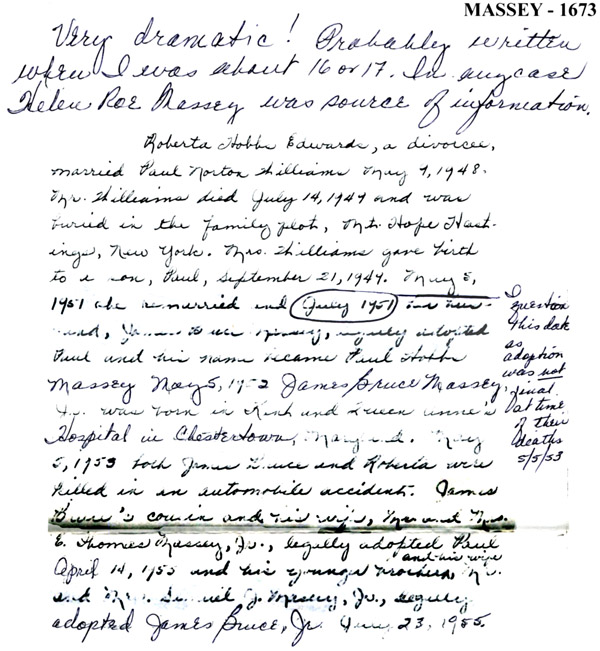 MASSEY - 1673
Very dramatic! Probably written
when I was about 16 or 17. In any case
Helen Roe Massey was source of information.
Roberta Hobbs Edwards, a divorcee,
married Paul Norton Williams May 7, 1948.
Mr. Williams died July 14, 1949 and was
buried in the family plot, Mt. Hope Hast-
ings, New York. Mrs. Williams gave birth
to a son, Paul, September 21, 1949. May 5,
1951 she remarried and July 1951 her hus-
band, James Bruce Massey, legally adopted
Paul and his name became Paul Hobbs
Massey May 5, 1952 James Bruce Massey,
Jr. was born in Kent and Queen Anne's
Hospital in Chestertown, Maryland. May
5, 1953 both James Bruce and Roberta were
killed in an automobile accident. James
Bruce's cousin and his wife, Mr. and Mrs.
E. Thomas Massey, Jr., legally adopted Paul
April 14, 1955 and his younger brother, Mr.
and his wife
and Mrs. Samuel J. Massey, Jr., legally
adopted James Bruce, Jr. June 23, 1955.
I
question
this date
as
adoption
was not
final
at time
of their
deaths
5/5/53